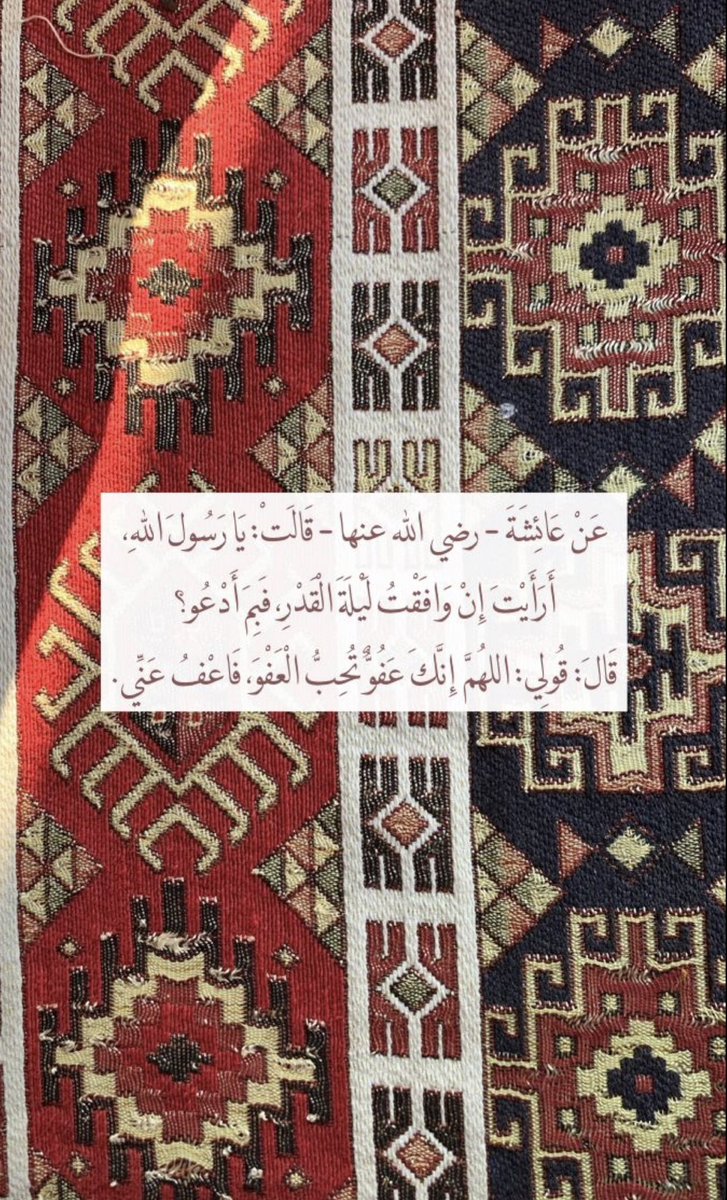 عَنْ عَائِشَةَ - رضي الله عنها - قَالَتْ: يَا رَسُولَ اللهِ،
أَرَأَيْتَ إِنْ وَافَقْتُ لَيْلَةَ الْقَدْرِ، فَبِمَ أَدْعُو؟
قَالَ: قُولِي: اللهُمَّ إِنَّكَ عَفُوٌّ تُحِبُّ الْعَفْوَ، فَاعْفُ عَنِّي.